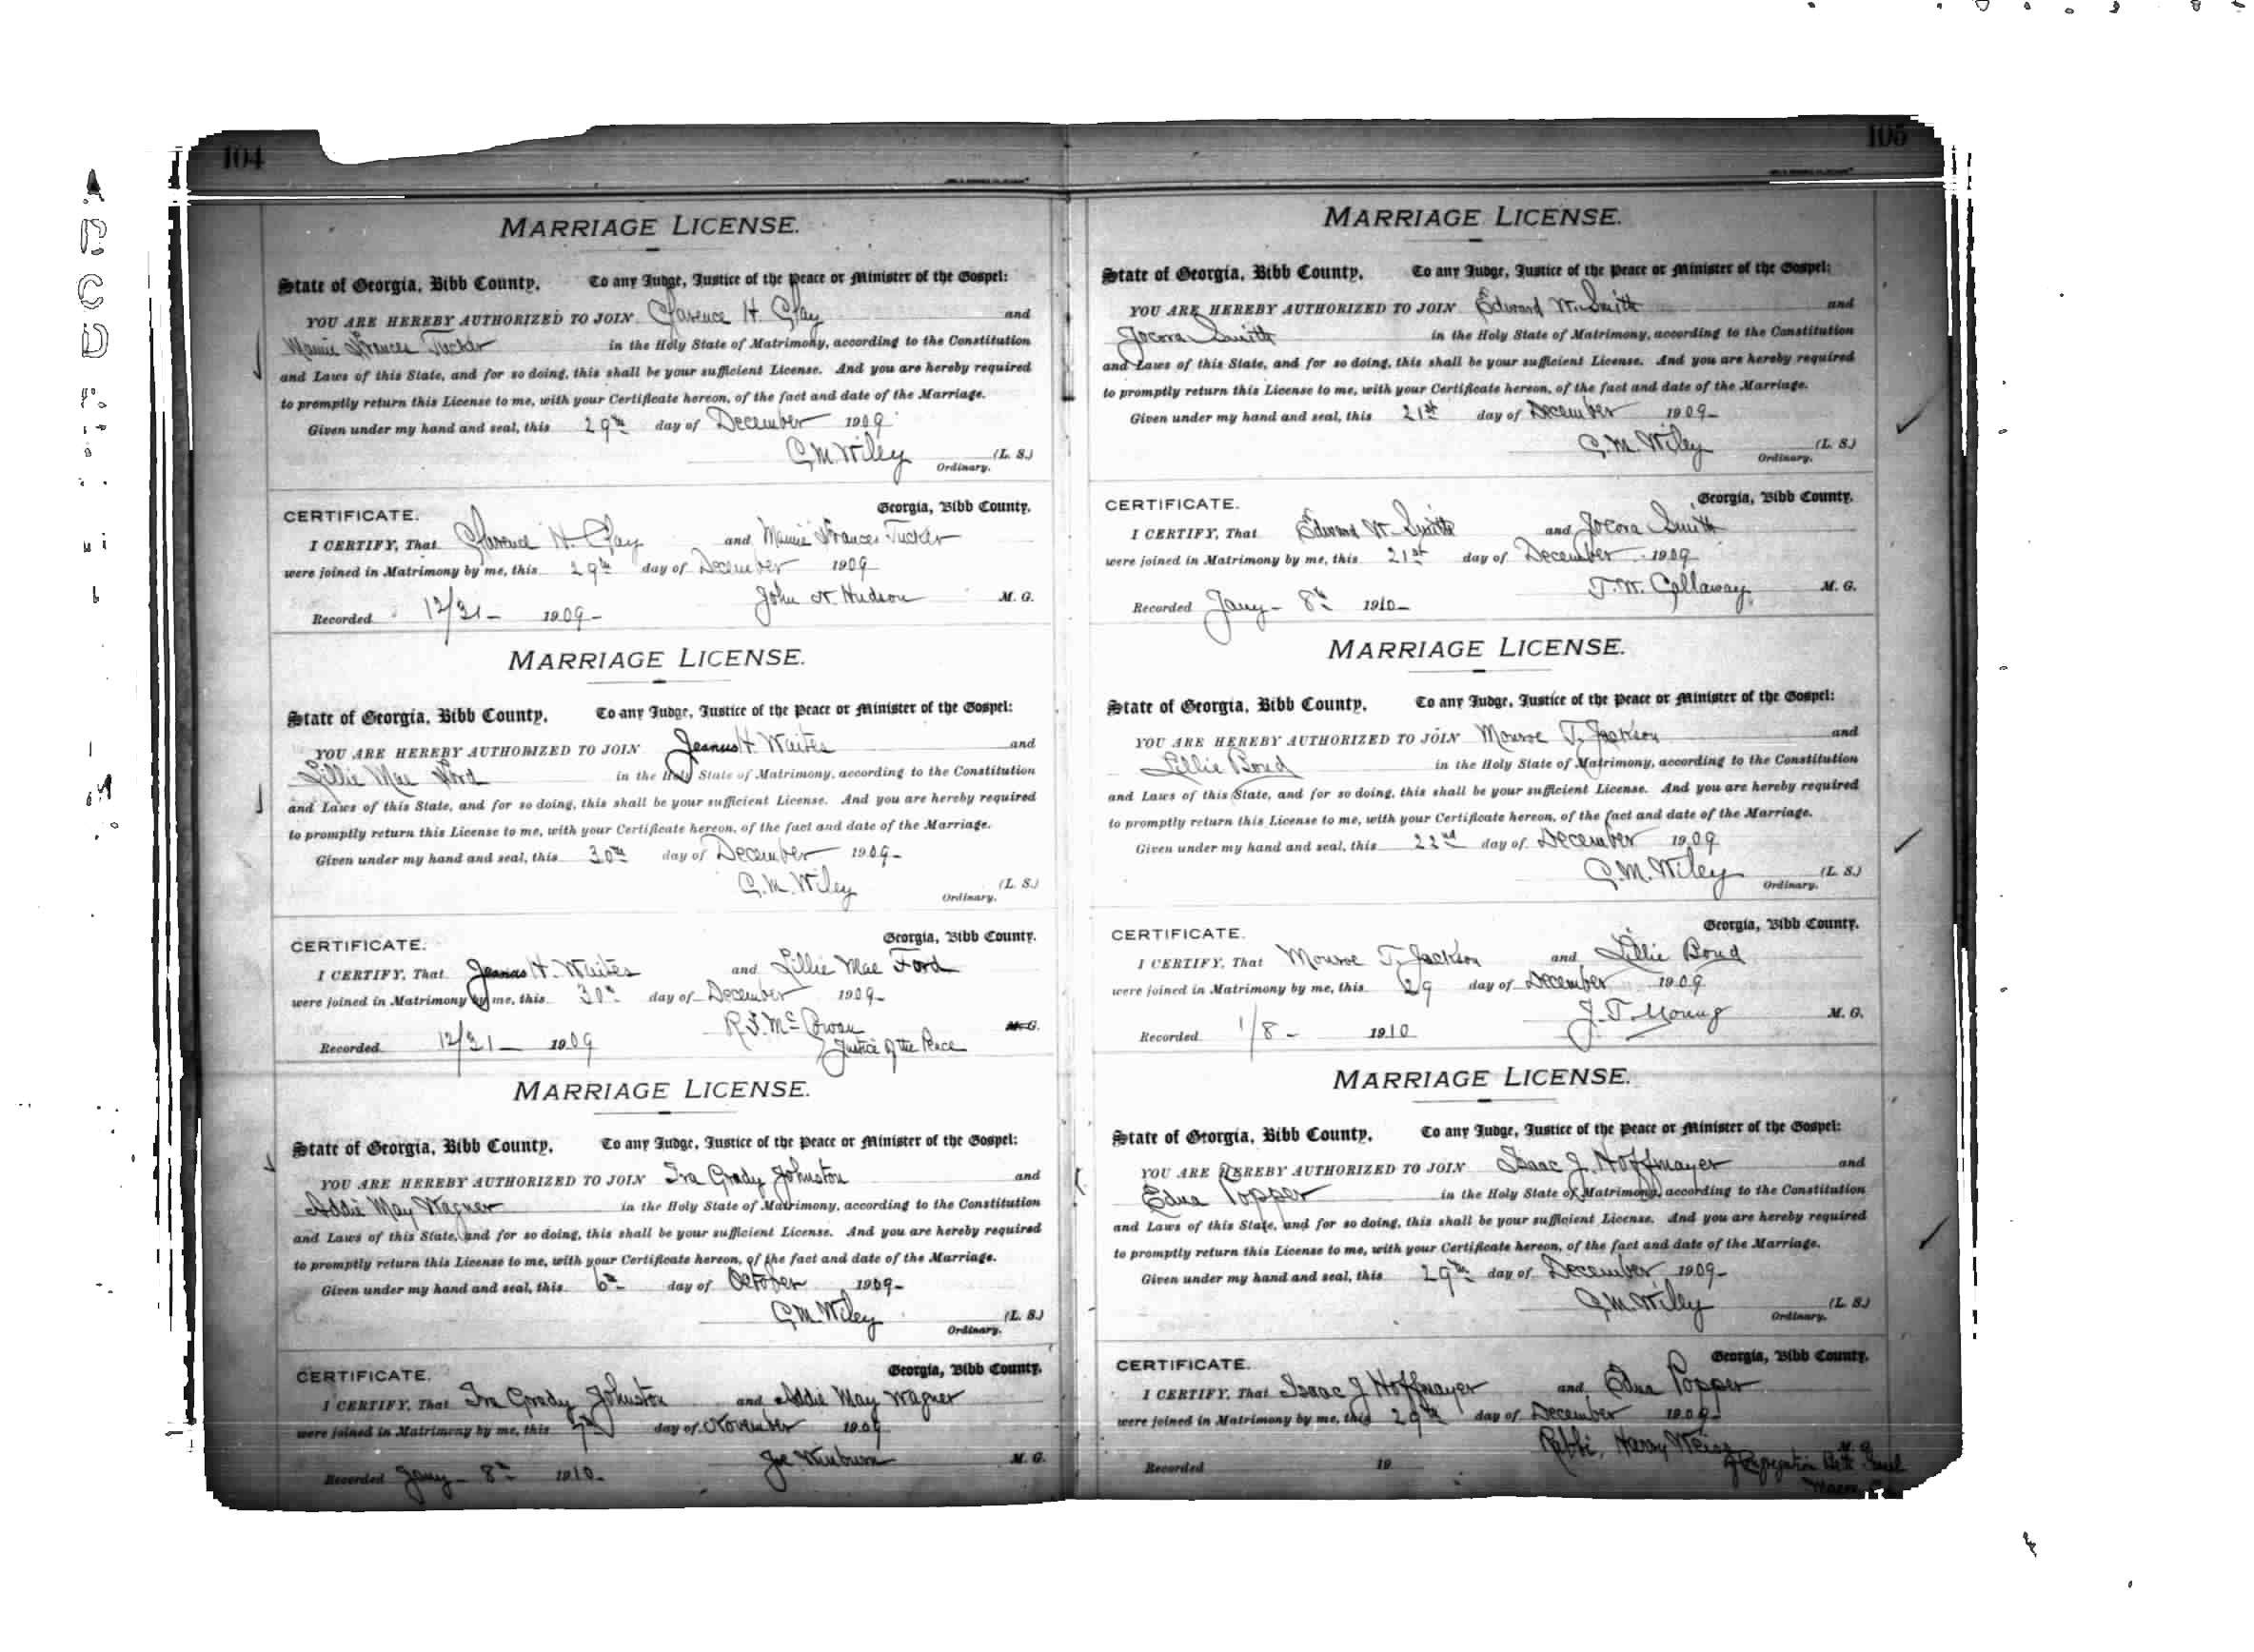 104
MARRIAGE LICENSE.
State of Georgia, Bibb County. To any Judge, Justice of the Peace or Minister of the Gospel:
YOU ARE HEREBY AUTHORIZED TO JOIN Clarence H. Clay and
Mamie Frances Tucker in the Holy State of Matrimony, according to the Constitution
and Laws of this State, and for so doing, this shall be your sufficient License. And you are hereby required
to promptly return this License to me, with your Certificate hereon, of the fact and date of the Marriage.
Given under my hand and seal, this 29th day of December 1909
C. M. Wiley (L. S.)
Ordinary.
CERTIFICATE. Georgia, Bibb County.
I CERTIFY, That Clarence H. Clay and Mamie Frances Tucker
were joined in Matrimony by me, this 29th day of December 1909
John N. Hudson M. G.
Recorded 12/31- 1909-
MARRIAGE LICENSE.
State of Georgia, Bibb County. To any Judge, Justice of the Peace or Minister of the Gospel:
YOU ARE HEREBY AUTHORIZED TO JOIN H. Waites and
Lillie Mae Ford in the Holy State of Matrimony, according to the Constitution
and Laws of this State, and for so doing, this shall be your sufficient License. And you are hereby required
to promptly return this License to me, with your Certificate hereon, of the fact and date of the Marriage.
Given under my hand and seal, this 30th day of December 1909-
C. M. Wiley (L. S.)
Ordinary.
CERTIFICATE. Georgia, Bibb County.
I CERTIFY, That H. Waites and Lillie Mae Ford
were joined in Matrimony by me, this 30th day of December 1909-
M. G.
Recorded 12/31- 1909 Justice of the Peace
MARRIAGE LICENSE.
State of Georgia, Bibb County. To any Judge, Justice of the Peace or Minister of the Gospel:
YOU ARE HEREBY AUTHORIZED TO JOIN Ira Grady Johnston and
Addie May Wagner in the Holy State of Matrimony, according to the Constitution
and Laws of this State, and for so doing, this shall be your sufficient License. And you are hereby required
to promptly return this License to me, with your Certificate hereon, of the fact and date of the Marriage.
Given under my hand and seal, this 6th day of October 1909-
C. M. Wiley (L. S.)
Ordinary.
CERTIFICATE. Georgia, Bibb County.
I CERTIFY, That Ira Grady Johnston and Addie May Wagner
were joined in Matrimony by me, this 7th day of November 1909
Joe Winburn M. G.
Recorded Jany- 8th 1910-
105
MARRIAGE LICENSE.
State of Georgia, Bibb County. To any Judge, Justice of the Peace or Minister of the Gospel:
YOU ARE HEREBY AUTHORIZED TO JOIN Edward W. Smith and
Jocora Smith in the Holy State of Matrimony, according to the Constitution
and Laws of this State, and for so doing, this shall be your sufficient License. And you are hereby required
to promptly return this License to me, with your Certificate hereon, of the fact and date of the Marriage.
Given under my hand and seal, this 21st day of December 1909-
C. M. Wiley (L. S.)
Ordinary.
CERTIFICATE. Georgia, Bibb County.
I CERTIFY, That Edward W. Smith and Jocora Smith
were joined in Matrimony by me, this 21st day of December 1909
T. W. Callaway M. G.
Recorded Jany- 8th 1910-
MARRIAGE LICENSE.
State of Georgia, Bibb County. To any Judge, Justice of the Peace or Minister of the Gospel:
YOU ARE HEREBY AUTHORIZED TO JOIN Monroe T. Jackson and
Lillie Bond in the Holy State of Matrimony, according to the Constitution
and Laws of this State, and for so doing, this shall be your sufficient License. And you are hereby required
to promptly return this License to me, with your Certificate hereon, of the fact and date of the Marriage.
Given under my hand and seal, this 22nd day of December 1909
C. M. Wiley (L. S.)
Ordinary.
CERTIFICATE. Georgia, Bibb County.
I CERTIFY, That Monroe T. Jackson and Lillie Bond
were joined in Matrimony by me, this 29 day of December 1909
J. T. Young M. G.
Recorded 1/8- 1910
MARRIAGE LICENSE.
State of Georgia, Bibb County. To any Judge, Justice of the Peace or Minister of the Gospel:
YOU ARE HEREBY AUTHORIZED TO JOIN Isaac J. Hoffmayer and
Edna Popper in the Holy State of Matrimony, according to the Constitution
and Laws of this State, and for so doing, this shall be your sufficient License. And you are hereby required
to promptly return this License to me, with your Certificate hereon, of the fact and date of the Marriage.
Given under my hand and seal, this 29th day of December 1909-
C. M. Wiley (L. S.)
Ordinary.
CERTIFICATE. Georgia, Bibb County.
I CERTIFY, That Isaac J Hoffmayer and Edna Popper
were joined in Matrimony by me, this 29th day of December 1909-
Rabbi, Harry Weiss M. G.
Recorded 19 Congregation Beth Israel
Macon, Ga